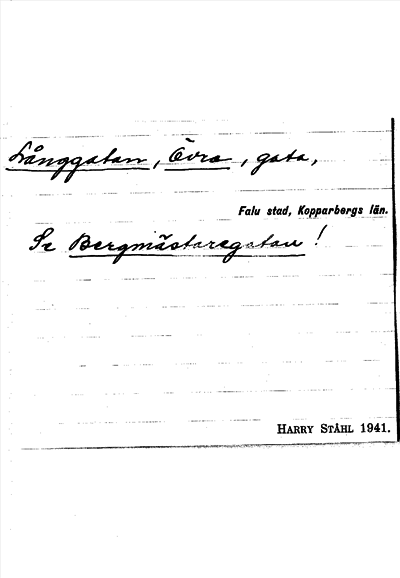 Långgatan, Övra, gata,
Falu stad, Kopparbergs län.
Se Bergmästaregatan!
HARRY STÅHL 1941.